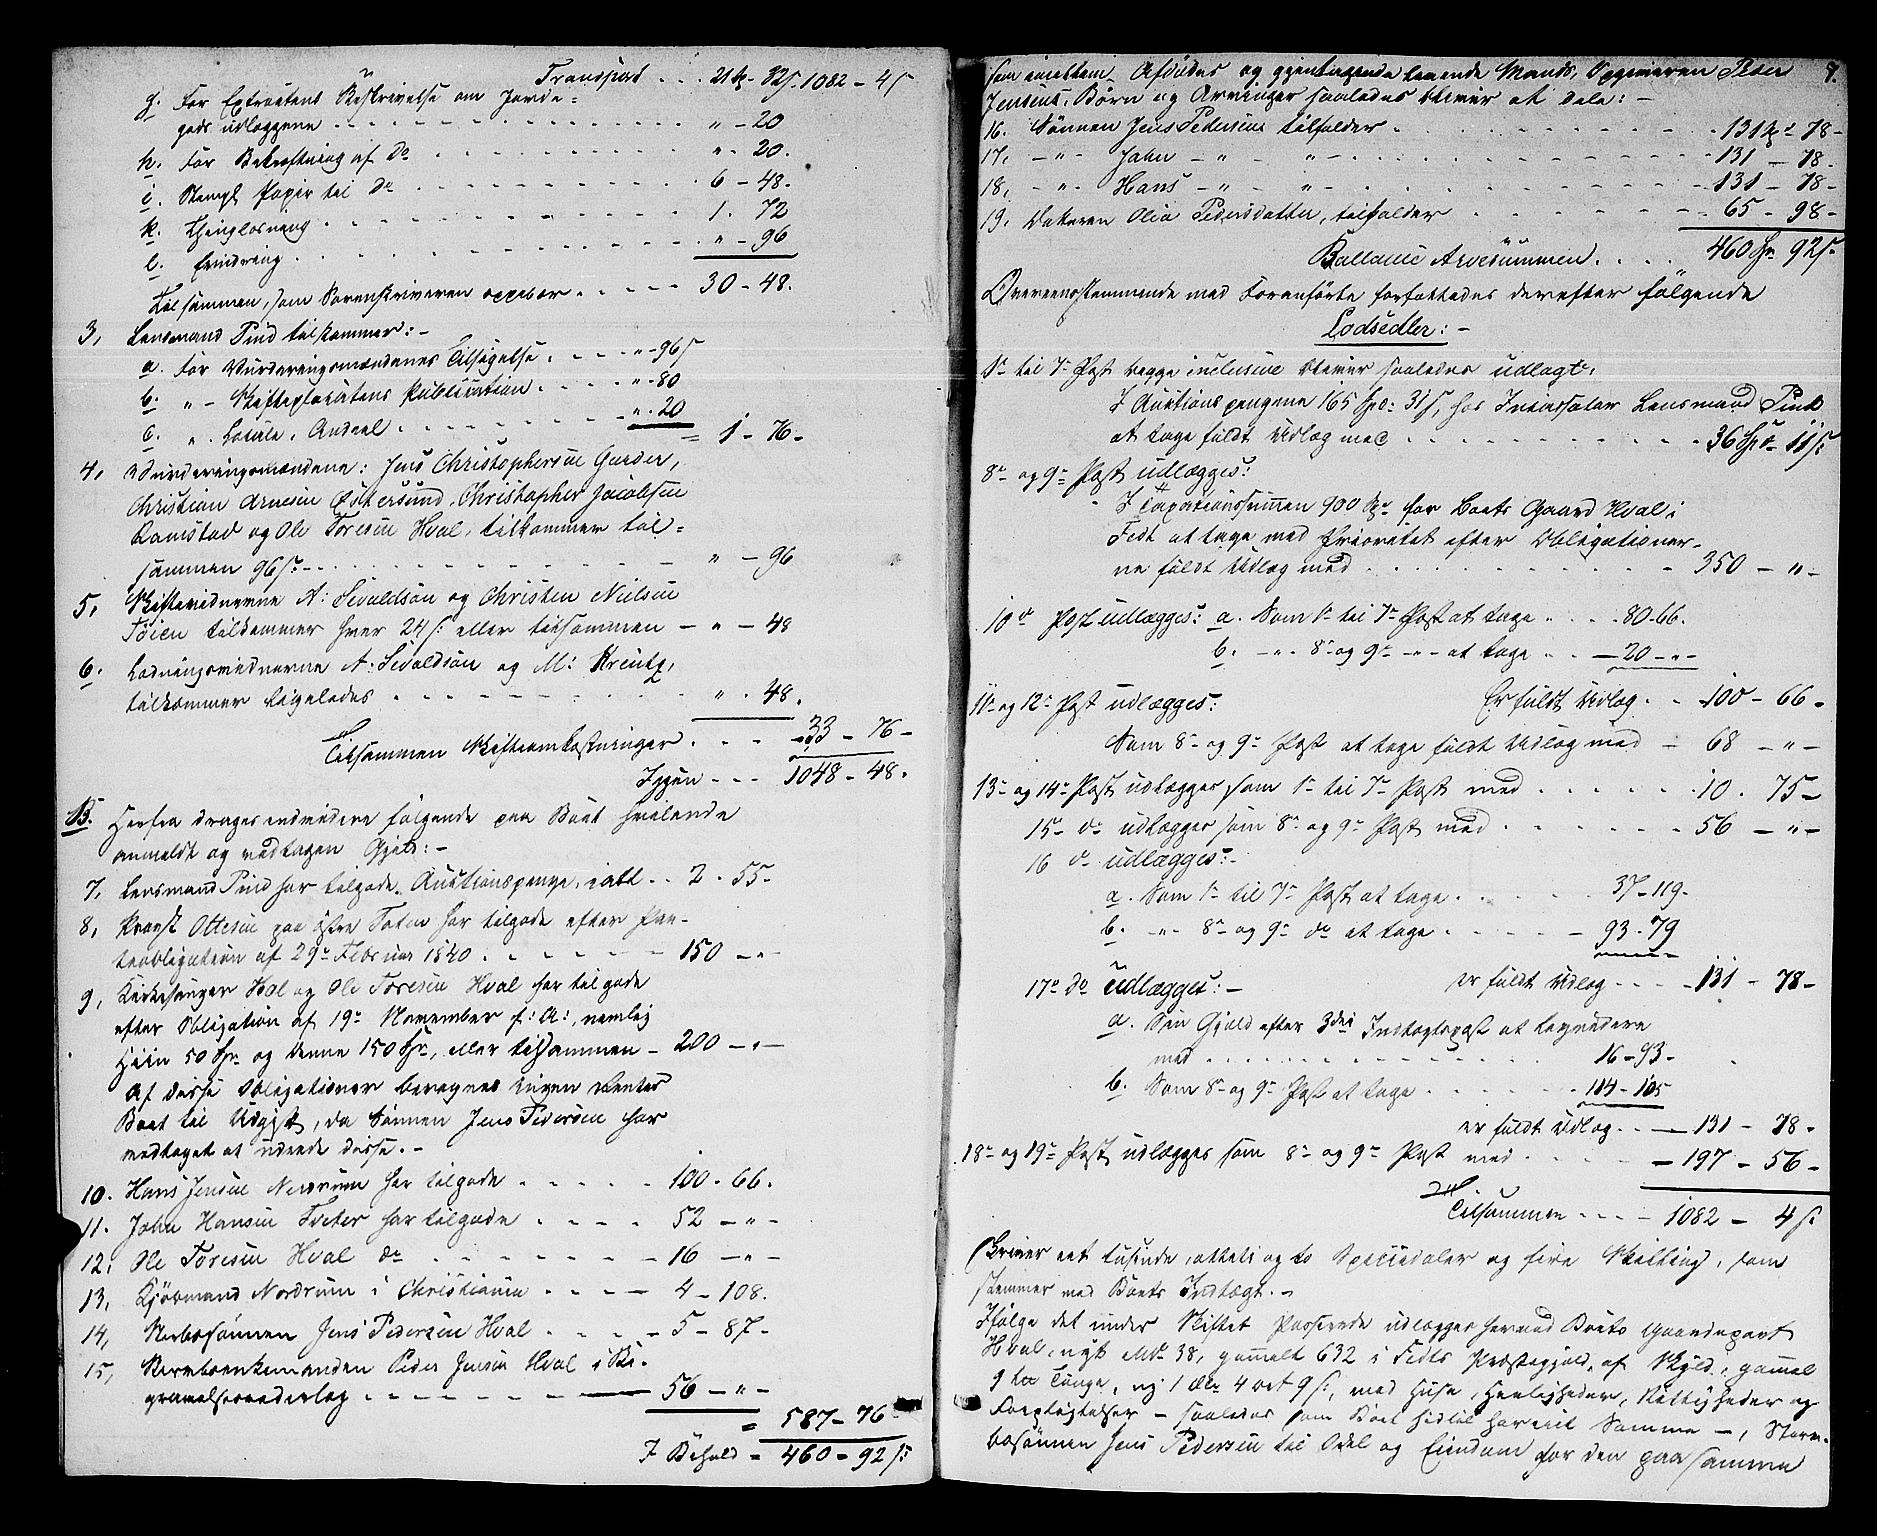 Transport . . . 21 Sp - 32 s. 1082 - 4 s
g. For Extractens Beskrivelse om Jorde=
gods udlæggene . . . " - 20
h. For Bekræftning af Do . . . " - 20.
i. Stempl. Papir til Do . . . 6 - 48.
k. Thinglæsning . . . 1. 72
l. Erindring . . . " - 96
Tilsammen, som Sorenskriveren oppebær . . . 30 - 48.
3, Lensmand Pind tilkommer: -
a. For Vurderingsmændenes Tilsigelse . . . " - 96 s
b. " - Skifteplacatens Publication . . . " - 80
c. " . Locale, Andeel . . . " . 20
= 1 - 76 -
4, Vurderingsmændene: Jens Christophersen Gurder,
Christian Arnesen Østersund, Christopher Jacobsen
Ramstad og Ole Toresen Hval, tilkommer til=
sammen 96 s. . . . " - 96
5, Skiftevidnerne A: Sivaldsøn og Christen Nielsen
Tøien tilkommer hver 24 s: eller tilsammen - " - 48
6. Lodningsvidnerne A: Sivaldsøn og M: Kreutz,
tilkommer ligeledes . . . " . 48.
Tilsammen Skifteomkostninger . . . 33 - 76 -
Igjen - - - 1048 - 48.
B. Herfra drages endvidere følgende paa Boet hvilende
anmeldt og vedtagen Gjeld: -
7, Lensmand Pind har tilgode Auctionspenge, ialt . . 2 . 55 -
8, Provst Ottesen paa østre Toten har tilgode efter Pan-
teobligation af 29de Februar 1840 . . . 150 - " -
9, Kirkesanger Hol og Ole Toresen Hval har tilgode
efter Obligation af 19de November f: A:, nemlig
Hiin 50 Spr. og denne 150 Spr, eller tilsammen - 200 - " -
Af disse Obligationer beregnes ingen Renter
Boet til Udgift, da Sønnen Jens Pedersen har
vedtaget at udrede disse. -
10. Hans Jensen Nordrum har tilgode . . . 100 . 66.
11. John Hansen Tveter har tilgode . . . 52 - " -
12. Ole Toresen Hval do . . . 16 - " -
13, Kjøbmand Nordrum i Christiania . . . 4 - 108.
14, Stervbosønnen Jens Pedersen Hval . . . 5 - 87 -
15, Stervboenkemanden Peder Jensen Hval i Be-
gravelsesvederlag . . . 56 - " -
= 587 - 76
I Behold = 460 - 92 s:
som imellem Afdødes og gjenlevende Mands, Opgiveren Peder 8.
Jensens, Børn og Arvinger saaledes bliver at dele: -
16. Sønnen Jens Pedersen tilfalder . . . 131 Sp 78 -
17, - " - John - " - " - . . . 131 - 78 -
18, - " - Hans - " - " - . . . 131 - 78 -
19, Datteren Olia Pedersdatter, tilfalder . . . 65 - 98 -
Ballance Arvesummen . . . 460 Spr. 92 s.
Overeensstemmende med Foranførte forfattedes derefter følgende
Lodsedler: -
1ste til 7de Post begge inclusive bliver saaledes udlagt:
I Auctionspengene 165 Spd: 31 s, hos Incassator Lensmand Pind
at tage fuldt Udlæg med . . . 36 Spd 11 s:
8de og 9de Post udlægges:
I Taxationssummen 900 Spd for Boets Gaard Hval i
Fedt at tage med Prioritet efter Obligationer-
ne fuldt Udlæg med . . . 350 - " -
10de Post udlægges: a. Som 1ste til 7de Post at tage . . . 80 - 66.
b. - " - 8de og 9de - " - at tage . . - 20 - " -
Er fuldt Udlæg . . . 100 - 66 -
11te og 12te Post udlægges:
Som 8de og 9de Post at tage fuldt Udlæg med - 68 - " -
13de og 14de Post udlægges som 1ste til 7de Post med . . . 10 . 75 -
15de do udlægges som 8de og 9de Post med . . . 56 - " -
16 do udlægges: -
a. Som 1ste til 7de Post at tage . . . 37 - 119 -
b. - " - 8de og 9de do at tage . . . 93 - 79
er fuldt Udlæg . . . 131 - 78 -
17de do udlægges: -
a. Sin Gjæld efter 3die Indtægtspost at beregnes
med . . . 16 - 93 -
b. Som 8de og 9de Post at tage . . . 114 - 105
er fuldt Udlæg . . . 131 - 78 -
18de og 19de Post udlægges som 8de og 9de Post med . . . - 197 - 56 -
Tilsammen - - - 1082 - 4 s:
Skriver eet tusinde, otteti og to Speciedaler og fire Skilling, som
stemmer med Boets Indtægt. -
Ifølge det under Skiftet Passerede udlægges herved Boets Gaardepart
Hval, nyt No 38, gammelt 632 i Fedts Præstegjeld, af Skyld, gammel
9 Lis. Tunge, ny 1 dlr 4 ort 9 s:, med Huse, Herligheder, Rettigheder og
Forpligtelser - saaledes som Boet hidtil har eiet Samme -, Sterv-
bosønnen Jens Pedersen til Odel og Eiendom for den paa samme